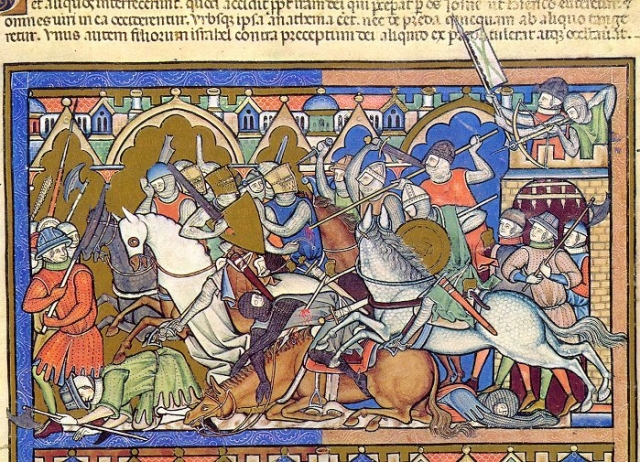 et aliquos interfecerunt. quod accidit ppt iram dei qui p os iosue ut
omnes uiri in ea occiderentur. Vrbsq ipsa anathema eet. nec de preda quicquam ab aliquo tange
retur. Vnus autem filiorum israel contra preceptum dei aliquid ex tulerat atq occultauit.